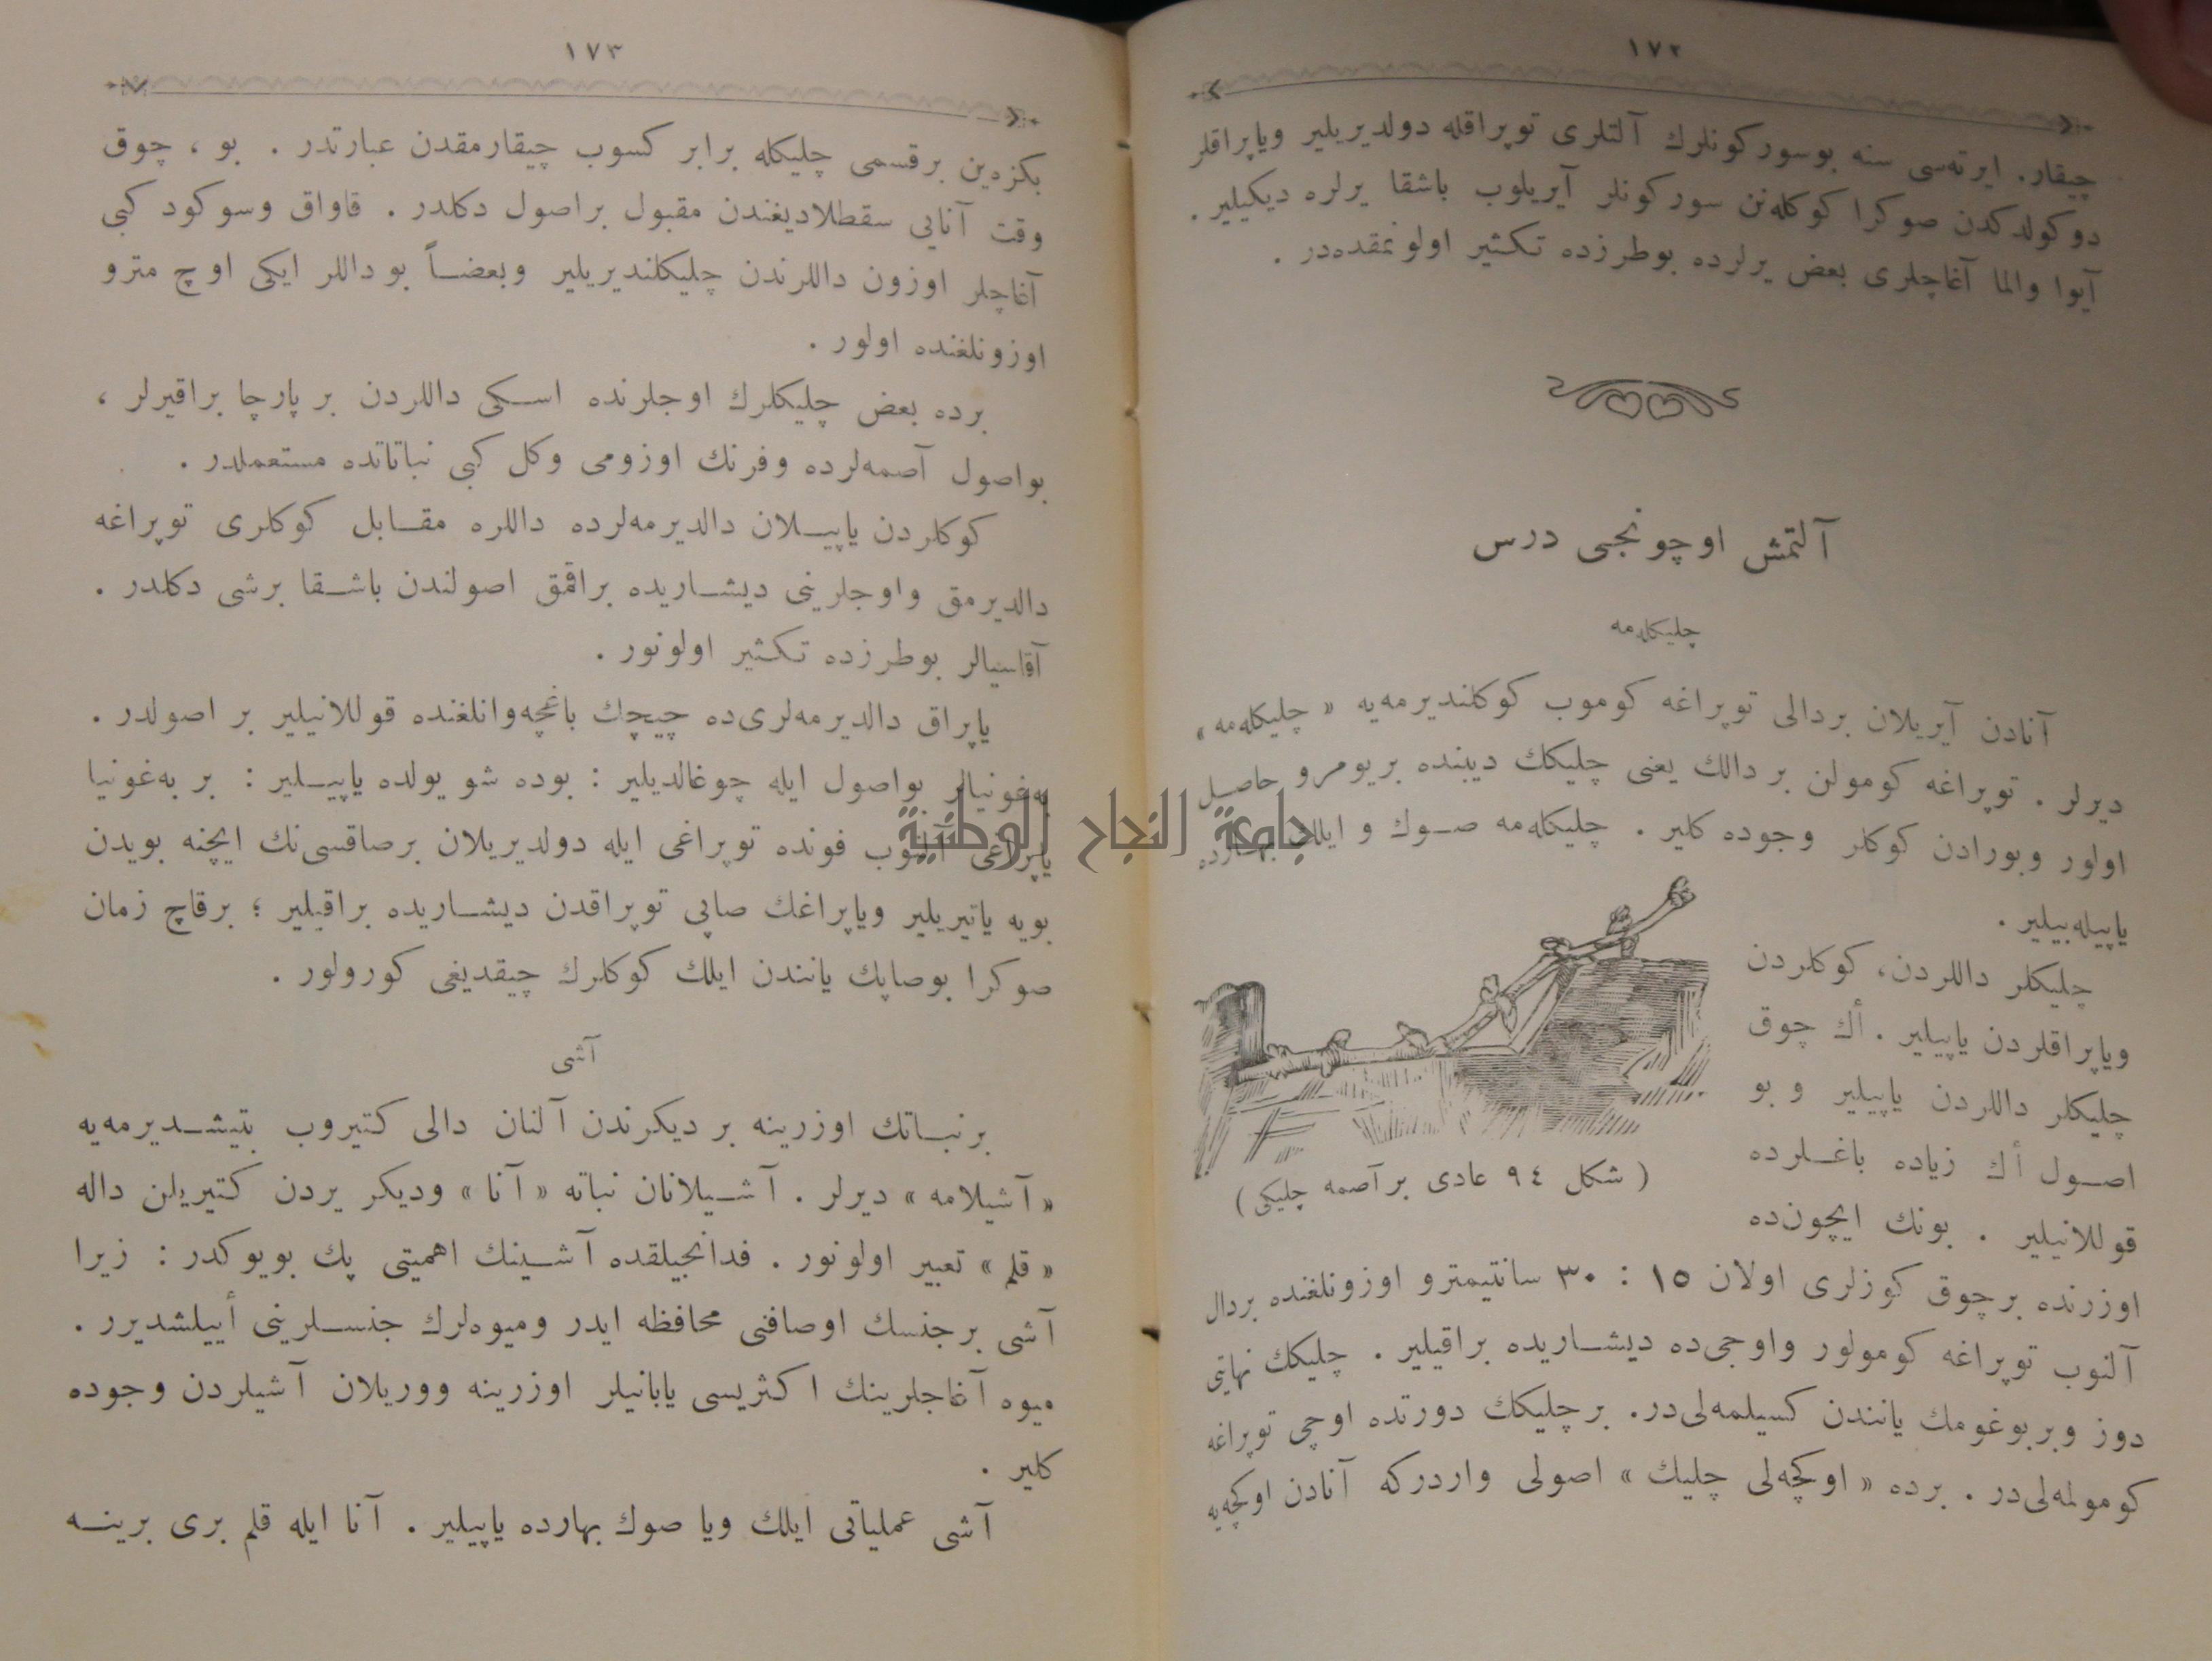 ١٧٢
چیقار. ایرته‌سی سنه بوسورکونلرك آلتلری توپراقله دولدیریلیر ویاپراقلر
دوکولدکدن صوکرا کوکله‌نن سورکونلر آیریلوب باشقا یرلره دیکیلیر .
آیوا والما آغاچلری بعض یرلرده بوطرزده تکثیر اولونمقده‌در .
آلتمش اوچونجی درس
چلیکله‌مه
آنادن آیریلان بردالی توپراغه کوموب کوکلندیرمه‌یه « چلیکله‌مه »
دیرلر . توپراغه کومولن بر دالك یعنی چلیکك دیبنده بریومرو حاصـل
اولور وبورادن کوکلر وجوده کلیر . چلیکله‌مه صـوك و ایلك بهـارده
یاپیله‌بیلیر .
چلیکلر داللردن، کوکلردن
ویاپراقلردن یاپیلیر . أك چوق
چلیکلر داللردن یاپیلیر و بو
اصـول أك زیاده باغـلرده
قوللانیلیر . بونك ایچون‌ده
( شکل ٩٤ عادی برآصمه چلیکی )
اوزرنده برچوق کوزلری اولان ١٥ : ٣٠ سانتیمترو اوزونلغنده بردال
آلنوب توپراغه کومولور واوجی‌ده دیشـاریده براقیلیر . چلیکك نهایتی
دوز وبربوغومك یانندن کسیلمه‌لی‌در. برچلیکك دورتده اوچی توپراغه
کومولمه‌لی‌در . برده « اوکچه‌لی چلیك » اصولی واردرکه آنادن اوکچه‌یه
١٧٣
بکزه‌ین برقسمی چلیکله برابر کسوب چیقارمقدن عبارتدر . بو ، چوق
وقت آنایی سقطلادیغندن مقبول براصول دکلدر . قاواق وسوکود کبی
آغاچلر اوزون داللرندن چلیکلندیریلیر وبعضـاً بو داللر ایکی اوچ مترو
اوزونلغنده اولور .
برده بعض چلیکلرك اوجلرنده اسـکی داللردن بر پارچا براقیرلر ،
بواصول آصمه‌لرده وفرنك اوزومی وکل کبی نباتاتده مستعملدر .
کوکلردن یاپیـلان دالدیرمه‌لرده داللره مقـابل کوکلری توپراغه
دالدیرمق واوجلرینی دیشـاریده براقمق اصولندن باشـقا برشی دکلدر .
آقاسیالر بوطرزده تکثیر اولونور .
یاپراق دالدیرمه‌لری‌ده چیچك باغچه‌وانلغنده قوللانیلیر بر اصولدر .
به‌غونیالر بواصول ایله چوغالدیلیر : بوده شو یولده یاپیـلیر : بر به‌غونیا
یاپراغی آلنوب فونده توپراغی ایله دولدیریلان برصاقسی‌نك ایچنه بویدن
بویه یاتیریلیر ویاپراغك صاپی توپراقدن دیشـاریده براقیلیر ؛ برقاچ زمان
صوکرا بوصاپك یانندن ایلك کوکلرك چیقدیغی کورولور .
آشی
برنبـاتك اوزرینه بر دیکرندن آلنان دالی کتیروب بتیشـدیرمه‌یه
« آشیلامه » دیرلر . آشـیلانان نباته « آنا » ودیکر یردن کتیریلن داله
« قلم » تعبیر اولونور . فدانجیلقده آشـینك اهمیتی پك بویوکدر : زیرا
آشی برجنسك اوصافنی محافظه ایدر ومیوه‌لرك جنسـلرینی أییلشدیرر .
میوه آغاجلرینك اکثریسی یابانیلر اوزرینه ووریلان آشیلردن وجوده
کلیر .
آشی عملیاتی ایلك ویا صوك بهارده یاپیلیر . آنا ایله قلم بری برینـه
جامعة النجاح الوطنية